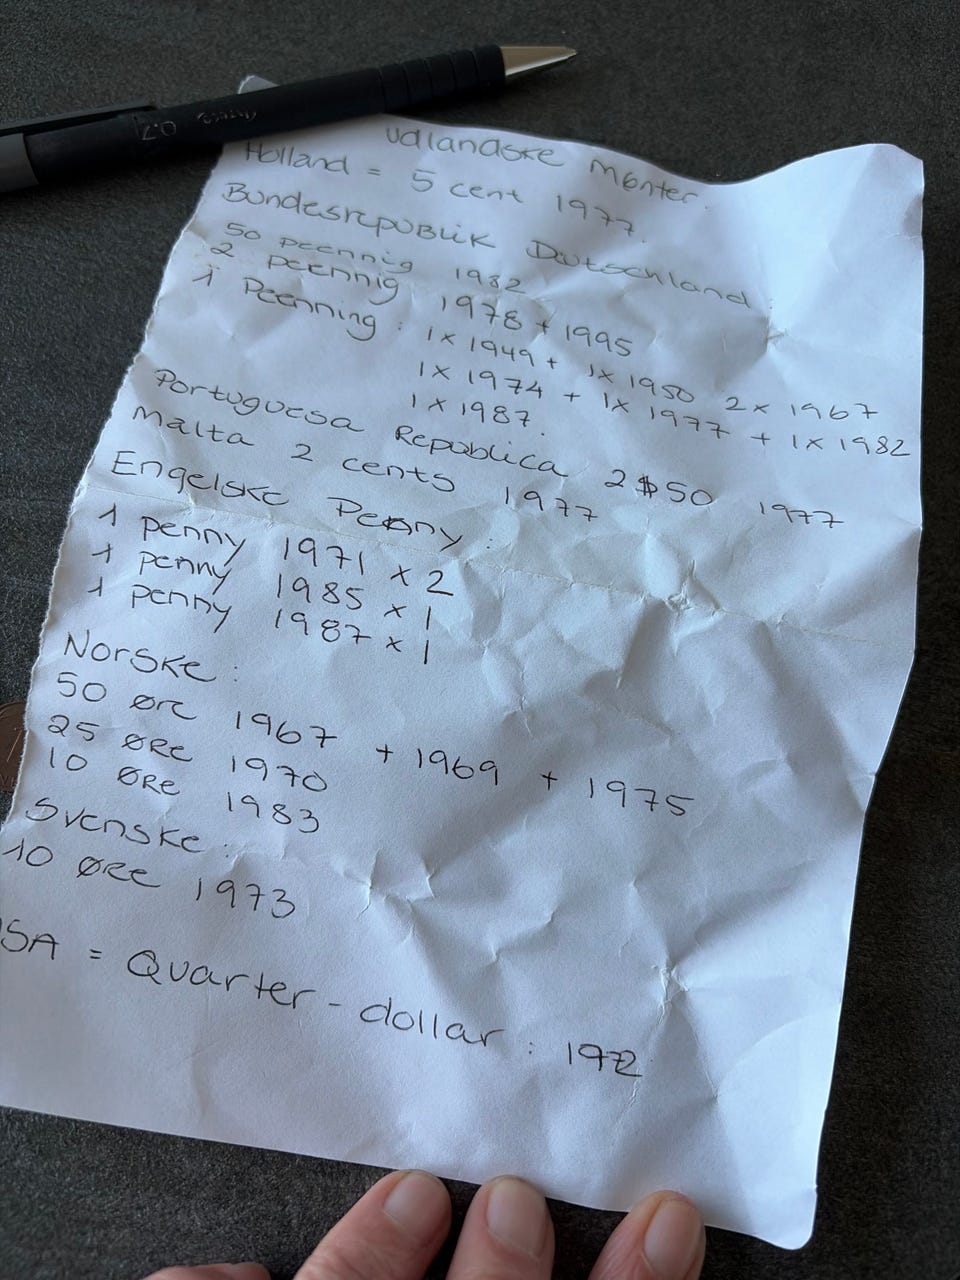 0.7
udlandske Mønter.
Holland = 5 cent 1977.
Bundesrepublik Deutschland:
50 pfennig 1982
2 pfennig 1978 + 1995
1 Pfenning: 1x 1949 + 1x 1950 2x 1967
1x 1974 + 1x 1977 + 1x 1982
1x 1987.
Portuguesa Republica 2$50 1977
Malta 2 cents 1977
Engelske Penny:
1 penny 1971 x 2
1 penny 1985 x 1
1 penny 1987 x 1
Norske:
50 øre 1967 + 1969 + 1975
25 øre 1970
10 øre 1983
Svenske:
10 øre 1973
SA = Quarter-dollar: 1972